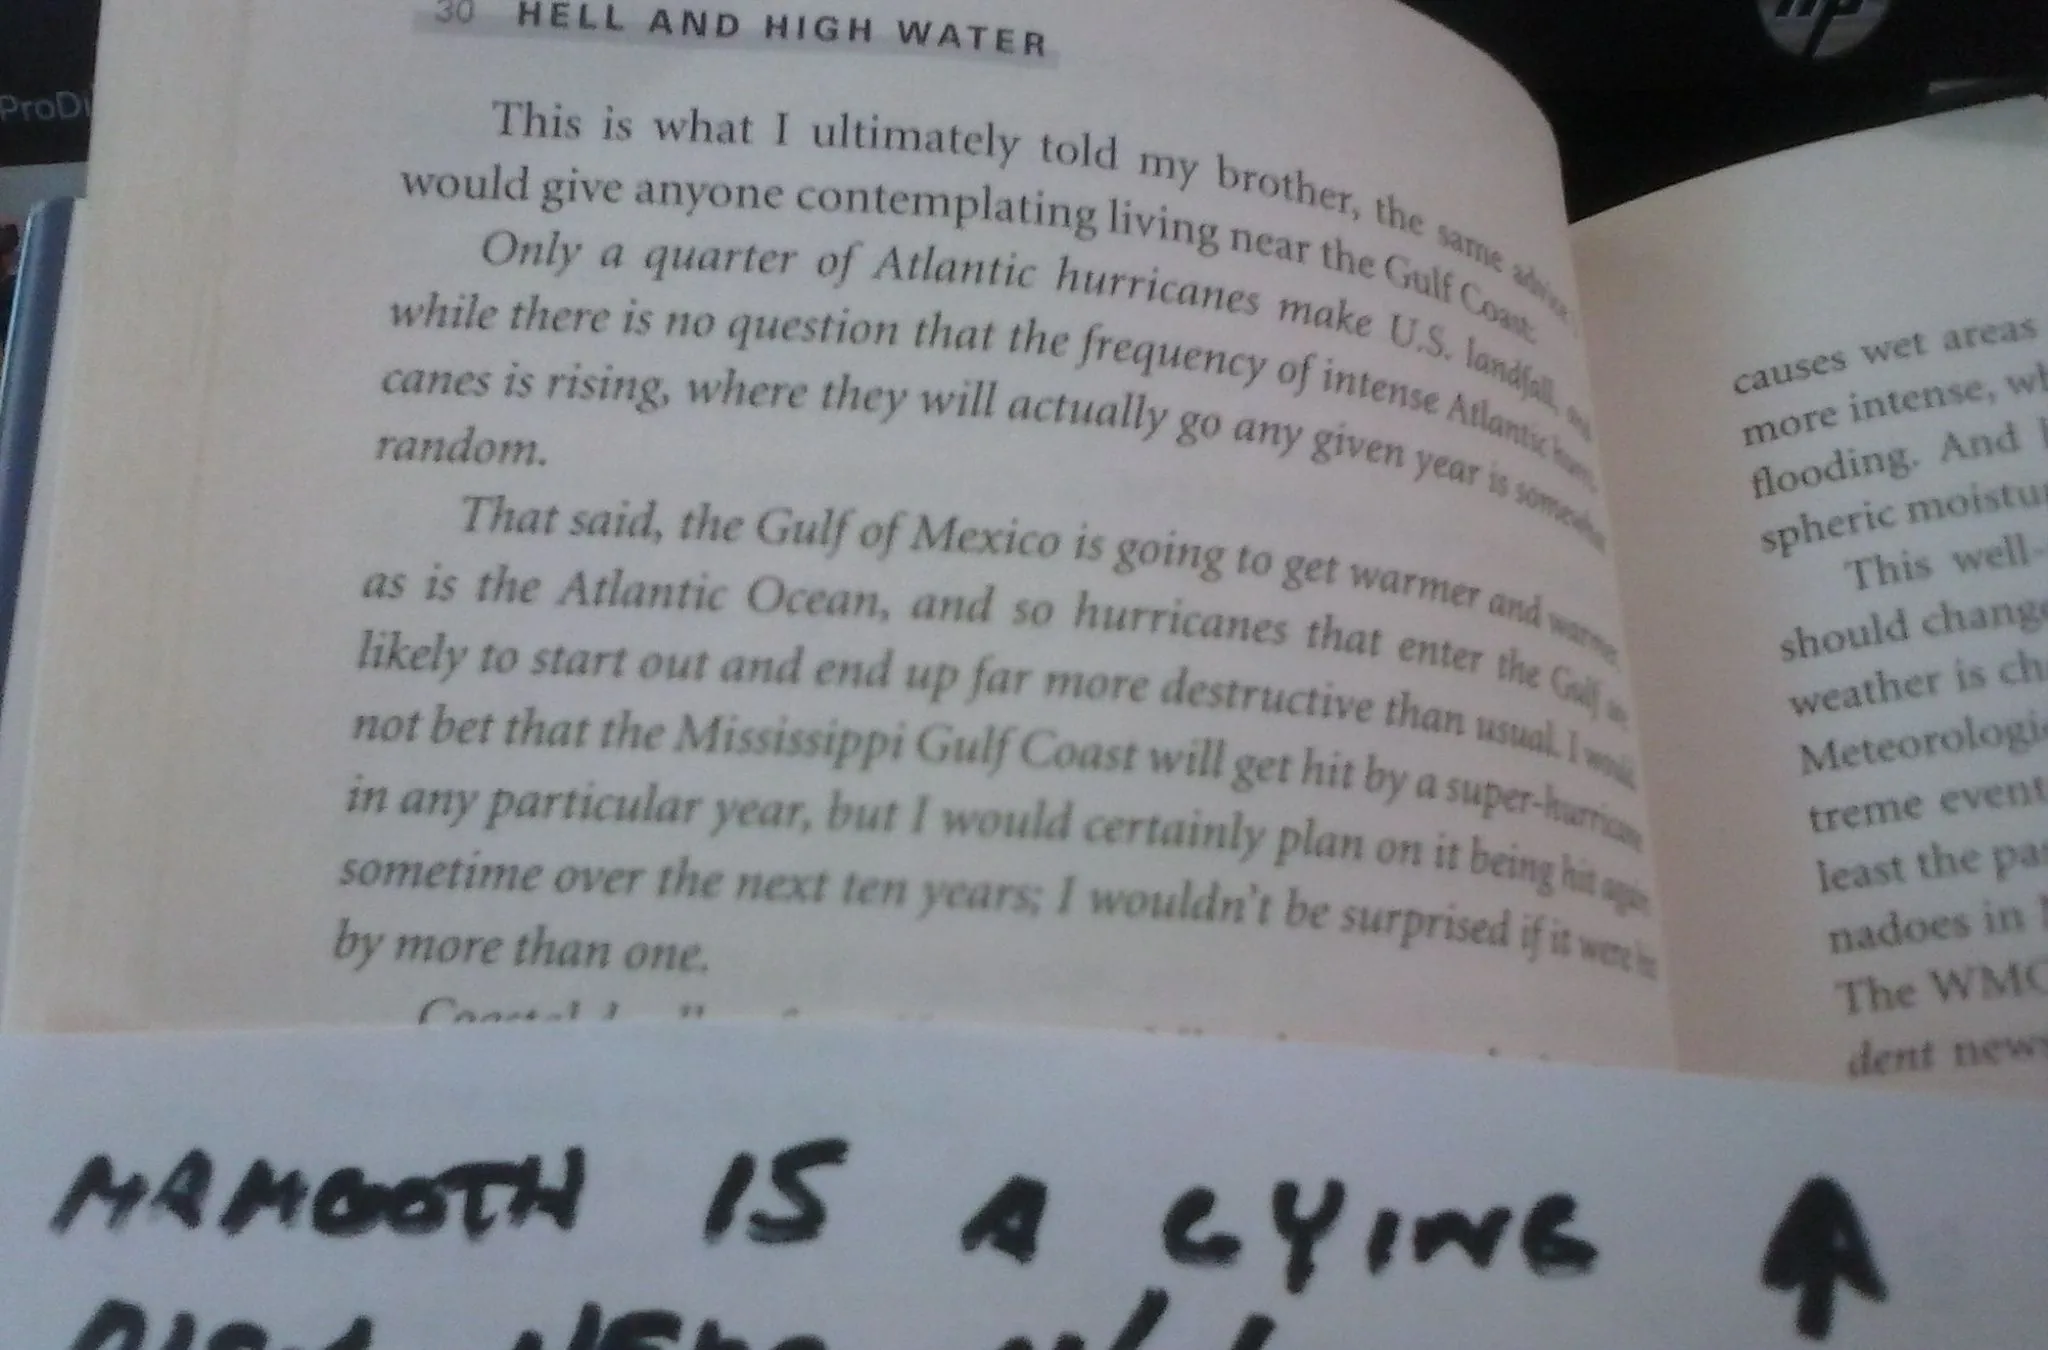 hp
ProDi
30 HELL AND HIGH WATER
This is what I ultimately told my brother, the same advice I
would give anyone contemplating living near the Gulf Coast:
Only a quarter of Atlantic hurricanes make U.S. landfall, and
while there is no question that the frequency of intense Atlantic hurri-
canes is rising, where they will actually go any given year is somewhat
random.
That said, the Gulf of Mexico is going to get warmer and warmer,
as is the Atlantic Ocean, and so hurricanes that enter the Gulf are
likely to start out and end up far more destructive than usual. I would
not bet that the Mississippi Gulf Coast will get hit by a super-hurricane
in any particular year, but I would certainly plan on it being hit again
sometime over the next ten years; I wouldn't be surprised if it were hit
by more than one.
causes wet areas
more intense, wh
flooding. And
spheric moistur
This well-
should change
weather is ch
Meteorologi
treme event
least the pas
nadoes in
The WMO
dent news
MAMOOTH IS A GYING ↑